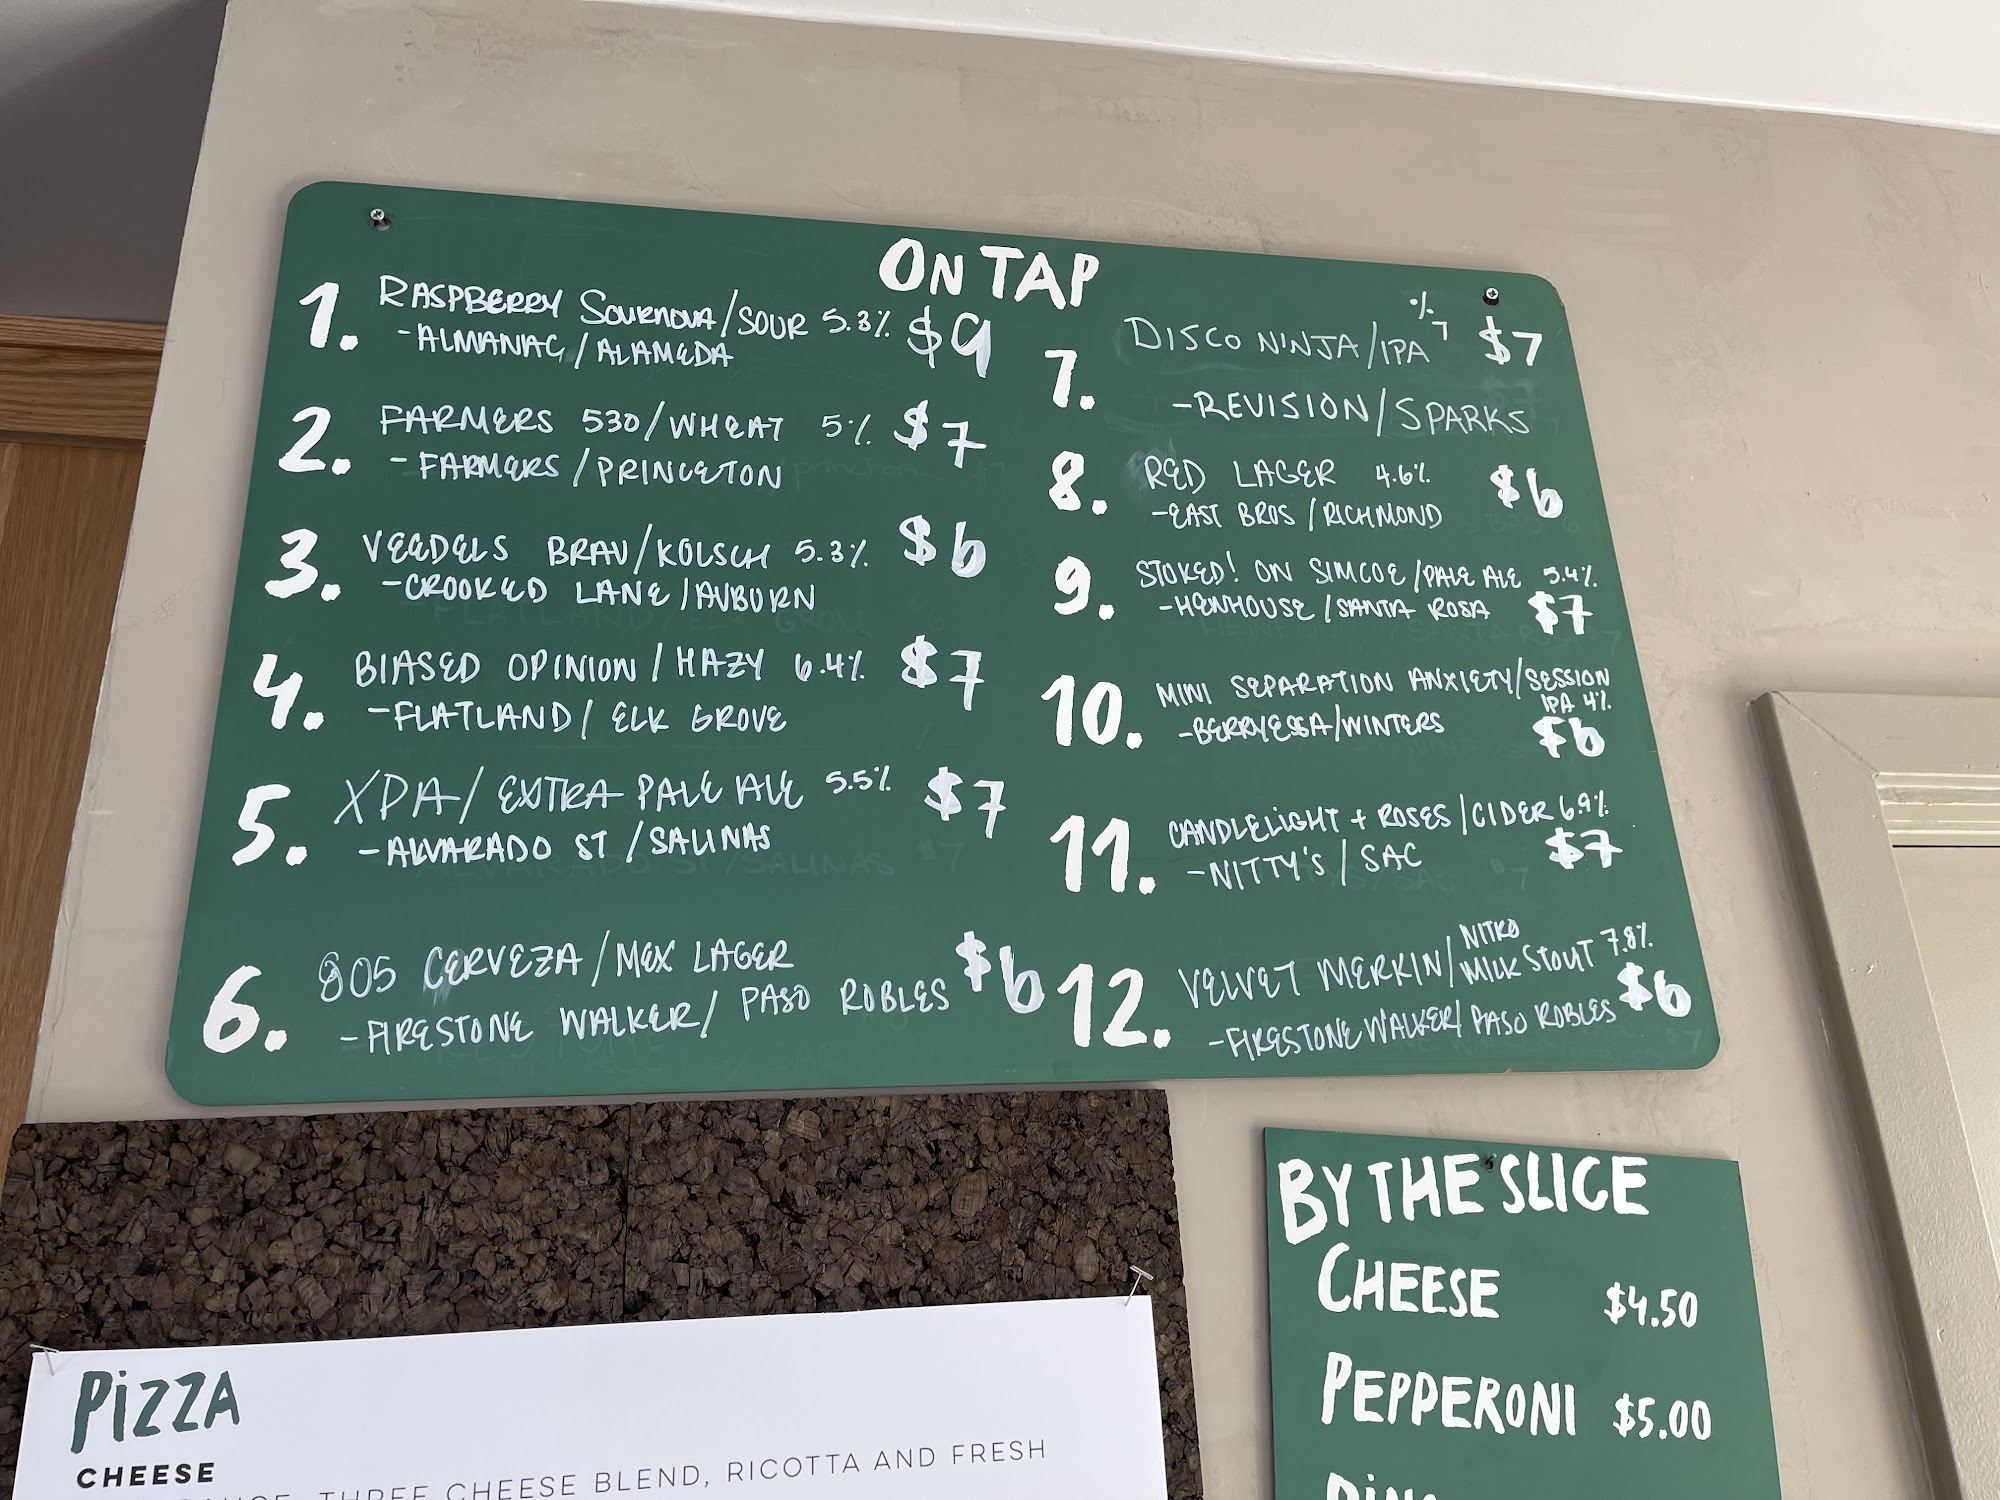 ON TAP
1. RASPBERRY SOURNOVA/SOUR 5.3% $9
-ALMANAC/ALAMEDA
2. FARMERS 530/WHEAT 5% $7
-FARMERS/PRINCETON
3. VEEDELS BRAU/KOLSCH 5.3% $6
-CROOKED LANE/AUBURN
4. BIASED OPINION/HAZY 6.4% $7
-FLATLAND/ELK GROVE
5. XPA/EXTRA PALE ALE 5.5% $7
-ALVARADO ST/SALINAS
6. 805 CERVEZA/MEX LAGER $6
-FIRESTONE WALKER/PASO ROBLES
7. DISCO NINJA/IPA 7% $7
-REVISION/SPARKS
8. RED LAGER 4.6% $6
-EAST BROS/RICHMOND
9. STOKED! ON SIMCOE/PALE ALE 5.4%
-HENHOUSE/SANTA ROSA $7
10. MINI SEPARATION ANXIETY/SESSION
IPA 4%
-BERRYESSA/WINTERS $6
11. CANDLELIGHT + ROSES/CIDER 6.9%
-NITTY'S/SAC $7
12. VELVET MERKIN/NITRO
MILK STOUT 7.8%
-FIRESTONE WALKER/PASO ROBLES $6
BY THE SLICE
CHEESE $4.50
PEPPERONI $5.00
PIZZA
CHEESE
THREE CHEESE BLEND, RICOTTA AND FRESH